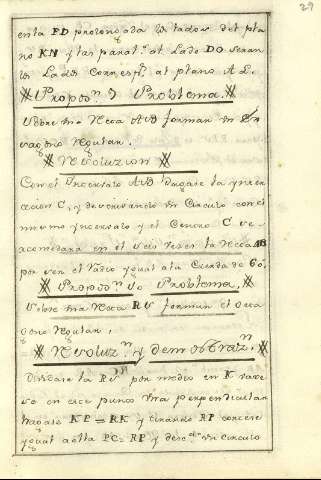 29
en la PD prolongada los lados del pla
no KN y las paral.s al Lado DO seran
los Lados Corresp.s al plano AE.
Propos.n 9 Problema.
Sobre una Recta AB formar un Ex
vagono Regular.
Resoluzion
Con el Yntervalo AB hagase la Ynter
cacion C, y descriviendo un Circulo con el
mismo Yntervalo y el Centro C se
acomodara en el seis veses la Recta AB
por ser el Radio ygual a la Cuerda de 60,
Propos.n 10 Problema,
Sobre una Recta RS formar el Octa
gono Regular,
Resoluz.n y demostraz.n
Dividase la RS por medio en K
en ese punto una perpendicular
hagase KP = RK y tirando RP
ygual a ella PC = RP y un circulo